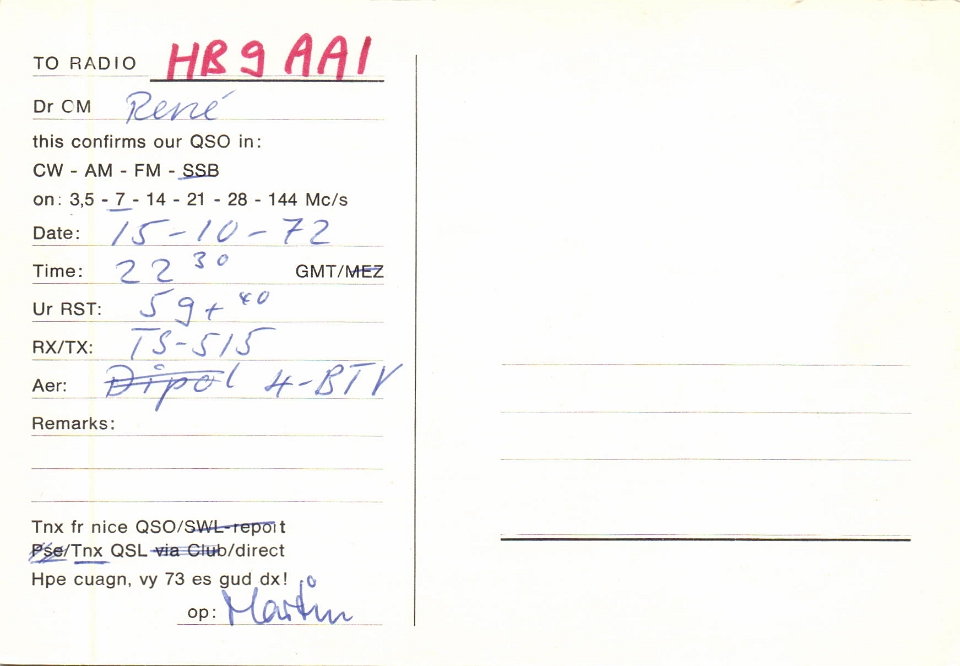 TO RADIO HB9AAI
Dr OM René
this confirms our QSO in:
CW - AM - FM - SSB
on: 3,5 - 7 - 14 - 21 - 28 - 144 Mc/s
Date: 15-10-72
Time: 22 30 GMT/MEZ
Ur RST: 59+40
RX/TX: TS-515
Aer: Dipol 4-BTV
Remarks:
Tnx fr nice QSO/SWL-report
Pse/Tnx QSL via Club/direct
Hpe cuagn, vy 73 es gud dx!
op: Martin